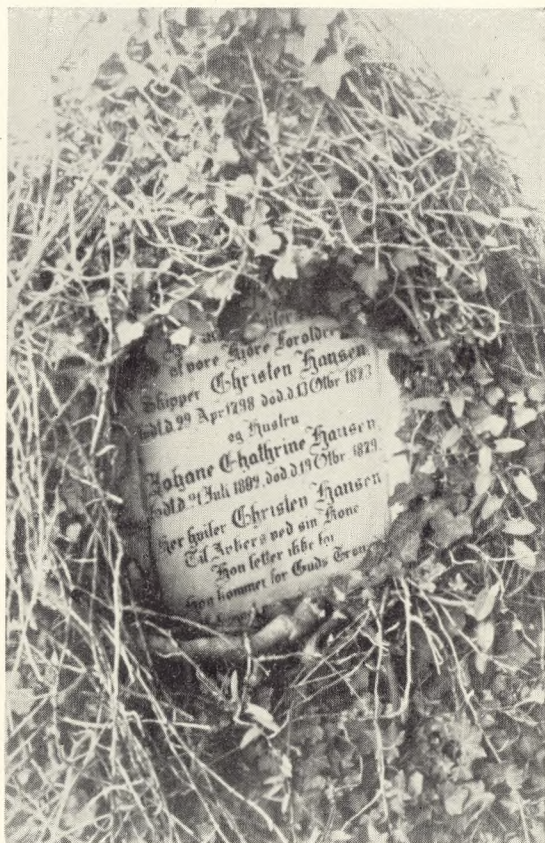 af vore Kjære Foroldre
Skipper Christen Hansen
født d. 29 Apr 1798 død. d. 13 Otbr 1873
og Hustru
Johane Chathrine Hansen
født d. 21 Juli 1809. død. d 19 Otbr. 1879.
Her hviler Christen Hansen
Til Ankers ved sin Kone
Han letter ikke før
Han kommer for Guds Tron